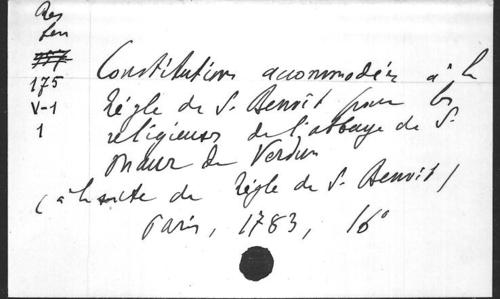 Res
fen
175
V-1
1
Constitutions accommodées à la
Règle de S. Benoît pour les
religieuses de l'abbaye de S.
Maur de Verdun
(à la suite de Règle de S. Benoît)
Paris, 1783, 16°